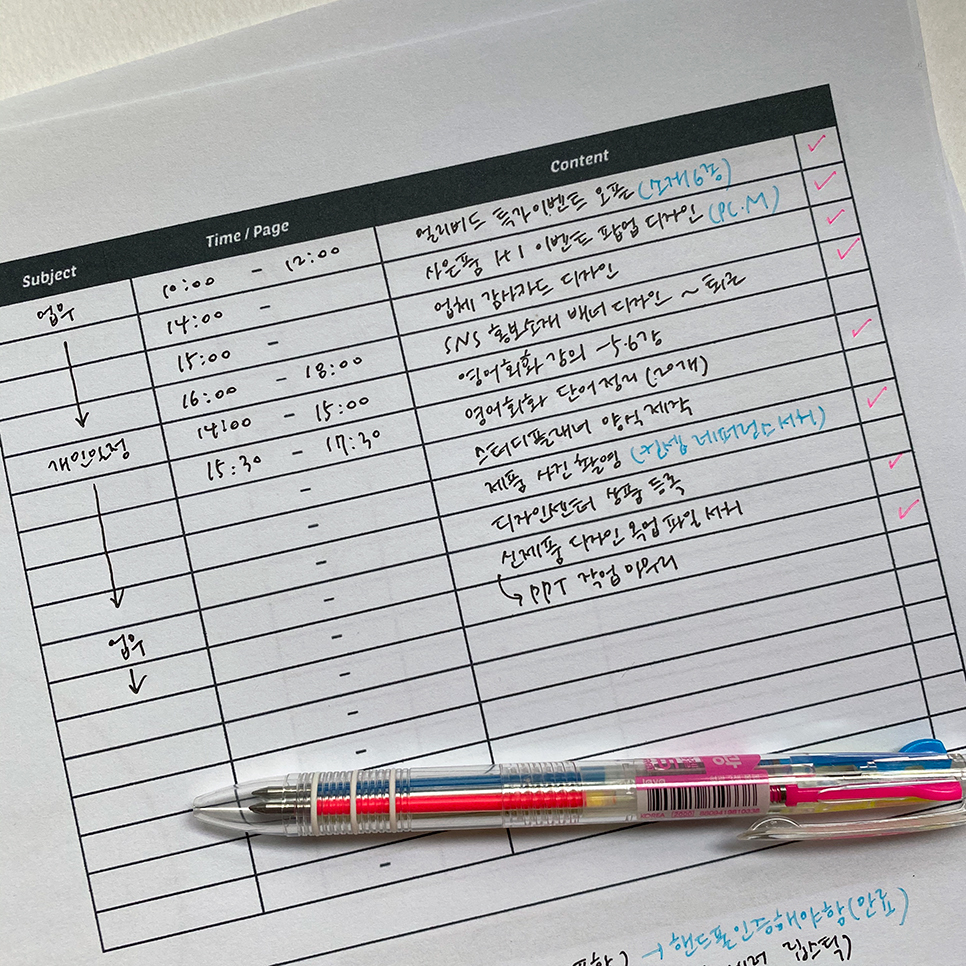 Subject Time / Page Content
업무 10:00 - 12:00 얼리버드 특가이벤트 오픈 (소재6종) ✓
14:00 - 사은품 1+1 이벤트 팝업 디자인 (PC.M) ✓
15:00 - 업체 감사카드 디자인 ✓
16:00 - 18:00 SNS 홍보소재 배너 디자인 ~ 퇴근 ✓
개인일정 14:00 - 15:00 영어회화 강의 -5.6강
15:30 - 17:30 영어회화 단어정리 (20개) ✓
- 스터디플래너 양식 제작
- 제품 사진 촬영 서치) ✓
- 디자인센터 상품 등록
- 신제품 디자인 목업 파일 서치 ✓
업무 - ↳ PPT 작업 마무리 ✓
-
-
-
-
KOREA